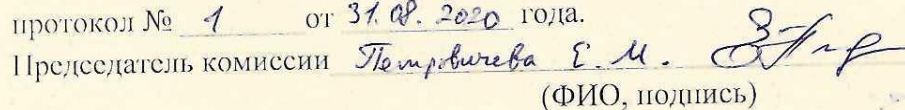 протокол № 1 от 31.08.2020 года.
Председатель комиссии Петровичева Е. М.
(ФИО, подпись)